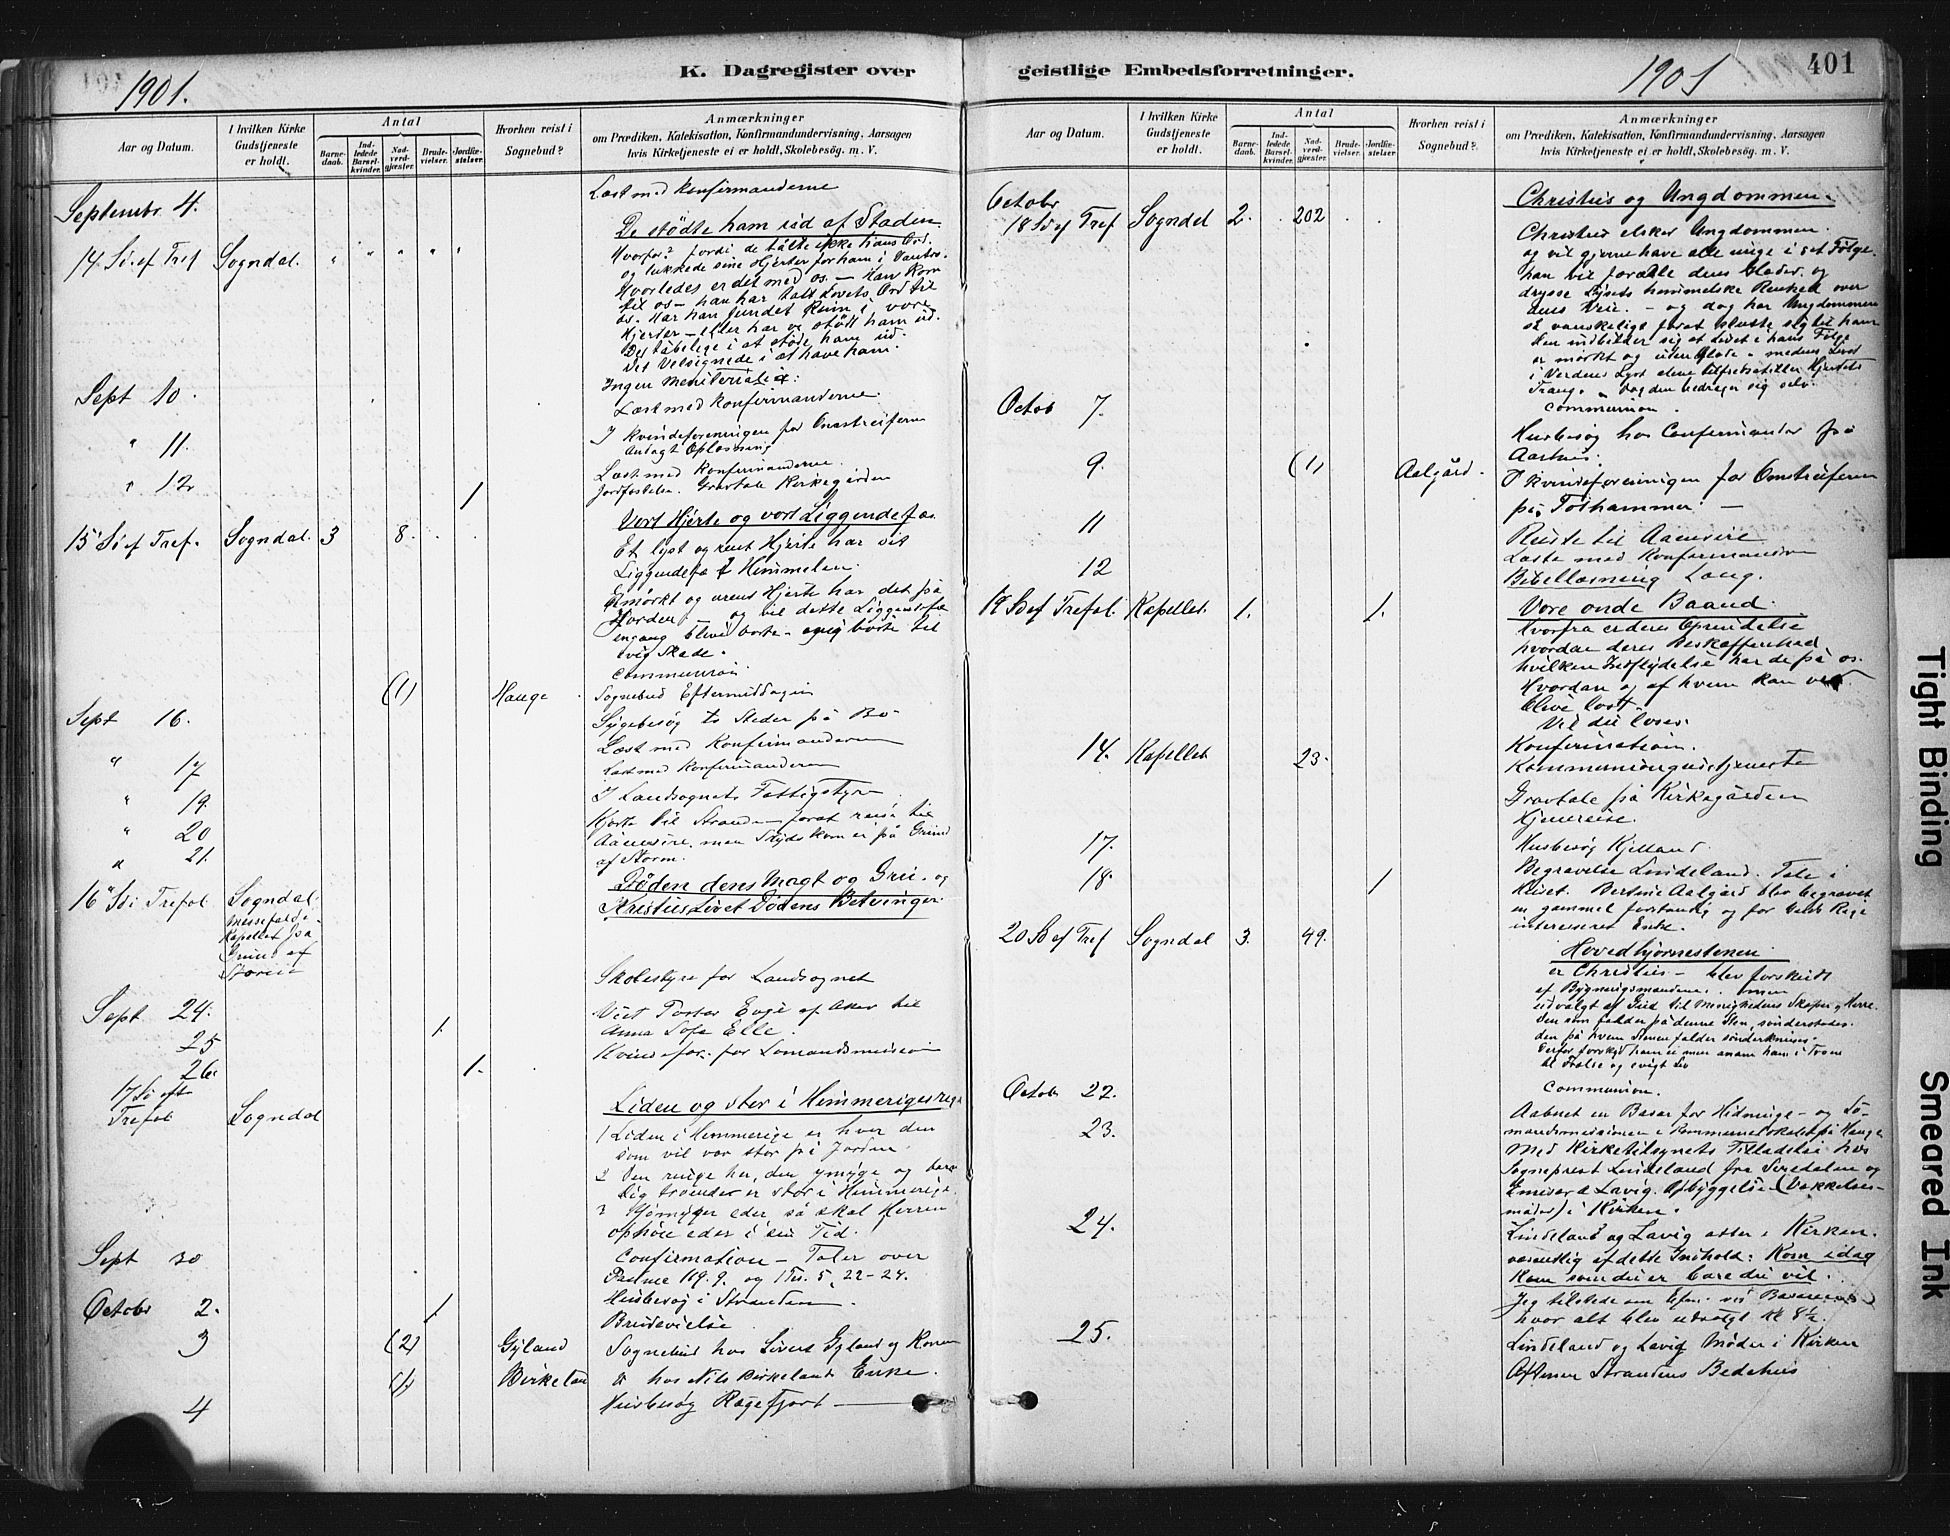 K. Dagregister over
geistlige Embedsforretninger.
401
1901.
1901
Aar og Datum.
I hvilken Kirke Gudstjeneste er holdt.
Antal
Barnedaab.
Indledede Barselkvinder.
Nadverdgjæster.
Brudevielser.
Jordfæstelser.
Hvorhen reist i Sognebud?
Anmærkninger
om Prædiken, Katekisation, Konfirmandundervisning, Aarsagen
hvis Kirketjeneste ei er holdt, Skolebesøg. m. V.
Septembr 4. Læst med Konfirmanderne
De stødte ham ud af Staden.
14 Sø ef Tref Sogndal. " " " " " Hvorfor? fordi de tålte ikke hans Ord.
og lukkede sine Hjerter for ham i Vantro.
Hvorledes er det med os – Han kom
til os – han har talt Livets Ord til
os. Har han fundet Rum i vore
Hjerter – eller har vi stødt ham ud.
Det tåbelige i at støde ham ud
Det Velsignede i at have ham.
Ingen Ministerialia:
Sept 10. Læst med Konfirmanderne.
" 11. I Kvindeforeningen for
Andagt Oplæsning
" 12 Læst med Konfirmanderne.
1 Jordfæstelse. Gravtale Kirkegården
Vort Hjerte og vort Liggendefæ.
15 Sø ef Tref. Sogndal. 3 8. Et lyst og rent Hjerte har sit
Liggendefæ i Himmelen.
mørkt og urent Hjerte har det på
Jorden og vil dette Liggendefæ
engang blive borte – borte til
evig Skade.
Communion
(1) Hauge Sognebud Eftermiddagen
Sept 16. Sygebesøg to Steder på Bø
Læst med Konfirmanderne
" 17 Læst med Konfirmanderne
" 19. I Landsognets Fattigstyre
" 20 Kjørte til Stranden forat reise til
" 21. Aanesire, men Skyds kom ei på Grund
af Storm.
16 Sø i Trefol. Sogndal. Døden dens Magt og Gru. og
Messefald i Kapellet på Grund af Storm
Kristus Livet Dødens Betvinger.
Skolestyre for Landsognet
Sept 24. Viet af Aker til
25 1. Anna Sofie Elle.
26. 1. Kvindefor. for
17 Sø eft Trefol. Sogndal Liden og stor i Himmeriges rige
1 Liden i Himmerige er hver den
som vil vær stor på Jorden.
2 Den ringe her, den ymyge og
troende er stor i Himmerige.
3 Ydmyger eder så skal Herren
ophøie eder i sin Tid.
Confirmation – Taler over
Sept 30 Psalme 119. 9. og 1 Tes. 5, 22–24.
Husbesøg i Stranden.
Octobr 2. 1 Brudevielse
3 (2) Gyland Sognebud hos Gyland og Konen
(1) Birkeland hos Nils Birkelands Enke.
4 Husbesøg Rægefjord
Octobr
18 Sø ef Tref Sogndal 2. 202 Christus og Ungdommen.
Christus elsker Ungdommen
og vil gjerne have alle unge i sit Følge.
han vil foræle dens Glæder og
drysse Lysets himmelske Renhed over
dens Veie. – og dog har Ungdommen
så vanskeligt forat slutte sig til ham
Den indbilder sig at Livet i hans Følge
er mørkt og uden Glæde. medens Livet
i Verdens Lyst alene tilfredsstiller Hjertets
Trang. Dog den bedrager sig selv.
Communion.
Octob 7. Husbesøg hos Confirmander på
9. (1) Aalgård. I Kvindeforeningen for
på Tothammer. –
11 Reiste til Aanesire
12 Læste med Konfirmanderne
Bibellæsning Laug.
19 Sø ef Trefol. Kapellet. 1. 1. Vore onde Baand.
Hvorfra er deres Oprindelse
hvordan deres Beskaffenhed
hvilken Indflydelse har de på os.
Hvordan og af hvem kan vi
blive løst.
Vil du løses.
Konfirmation.
14. Kapellet 23. Kommunionsgudstjeneste
Gravtale på Kirkegården
Hjemreise.
17. Husbesøg Kjelland.
18. 1 Begravelse Lindeland. Tale i
Huset. Bertine Aalgård blev begravet
en gammel forstandig og for Guds Rige
interesseret Enke.
20 Sø ef Tref Sogndal 3. 49. Hovedhjørnestenen
er Christus – blev forskudt
af Bygningsmændene. men
udvalgt af Gud til Menighedens Herre.
Den som falder på denne Sten, sønderstødes.
den på hvem Stenen falder sønderknuses.
Derfor forskyd ham ei men anam ham i Troen
til Frelse og evigt Liv
Communion.
Octob 22. Aabnet en Basar for Hedninge- og Sø-
23. mandsmissionen i Kommunelokalet på Hauge
Med Kirketilsynets Tilladelse hos
Sogneprest Lindeland fra Siredalen og
Emissær Lavig. Opbyggelse (Vækkelses-
møder) i Kirken.
24. Lindeland og Lavig atter i Kirken.
væsentlig af dette Indhold: Kom idag
Kom som du er bare du vil.
Jeg tilstede om Efm. ved Basaren
hvor alt blev udsolgt Kl 8½.
25. Lindeland og Lavig Møder i Kirken
Aftenen Strandens Bedehus
Tight Binding
Smeared Ink